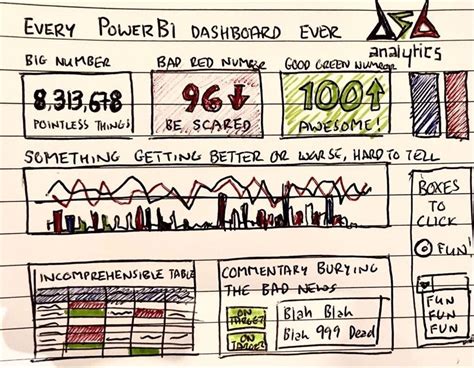 EVERY POWERBI DASHBOARD EVER
analytics
BIG NUMBER
BAD RED NUMBER
GOOD GREEN NUMBER
8,313,678
POINTLESS THINGS
96
BE SCARED
100
AWESOME!
SOMETHING GETTING BETTER OR WORSE, HARD TO TELL
BOXES
TO
CLICK
FUN!
FUN
FUN
FUN
INCOMPREHENSIBLE TABLE
COMMENTARY BURYING
THE BAD NEWS
ON
TARGET
ON
TARGET
Blah Blah
Blah 999 Dead